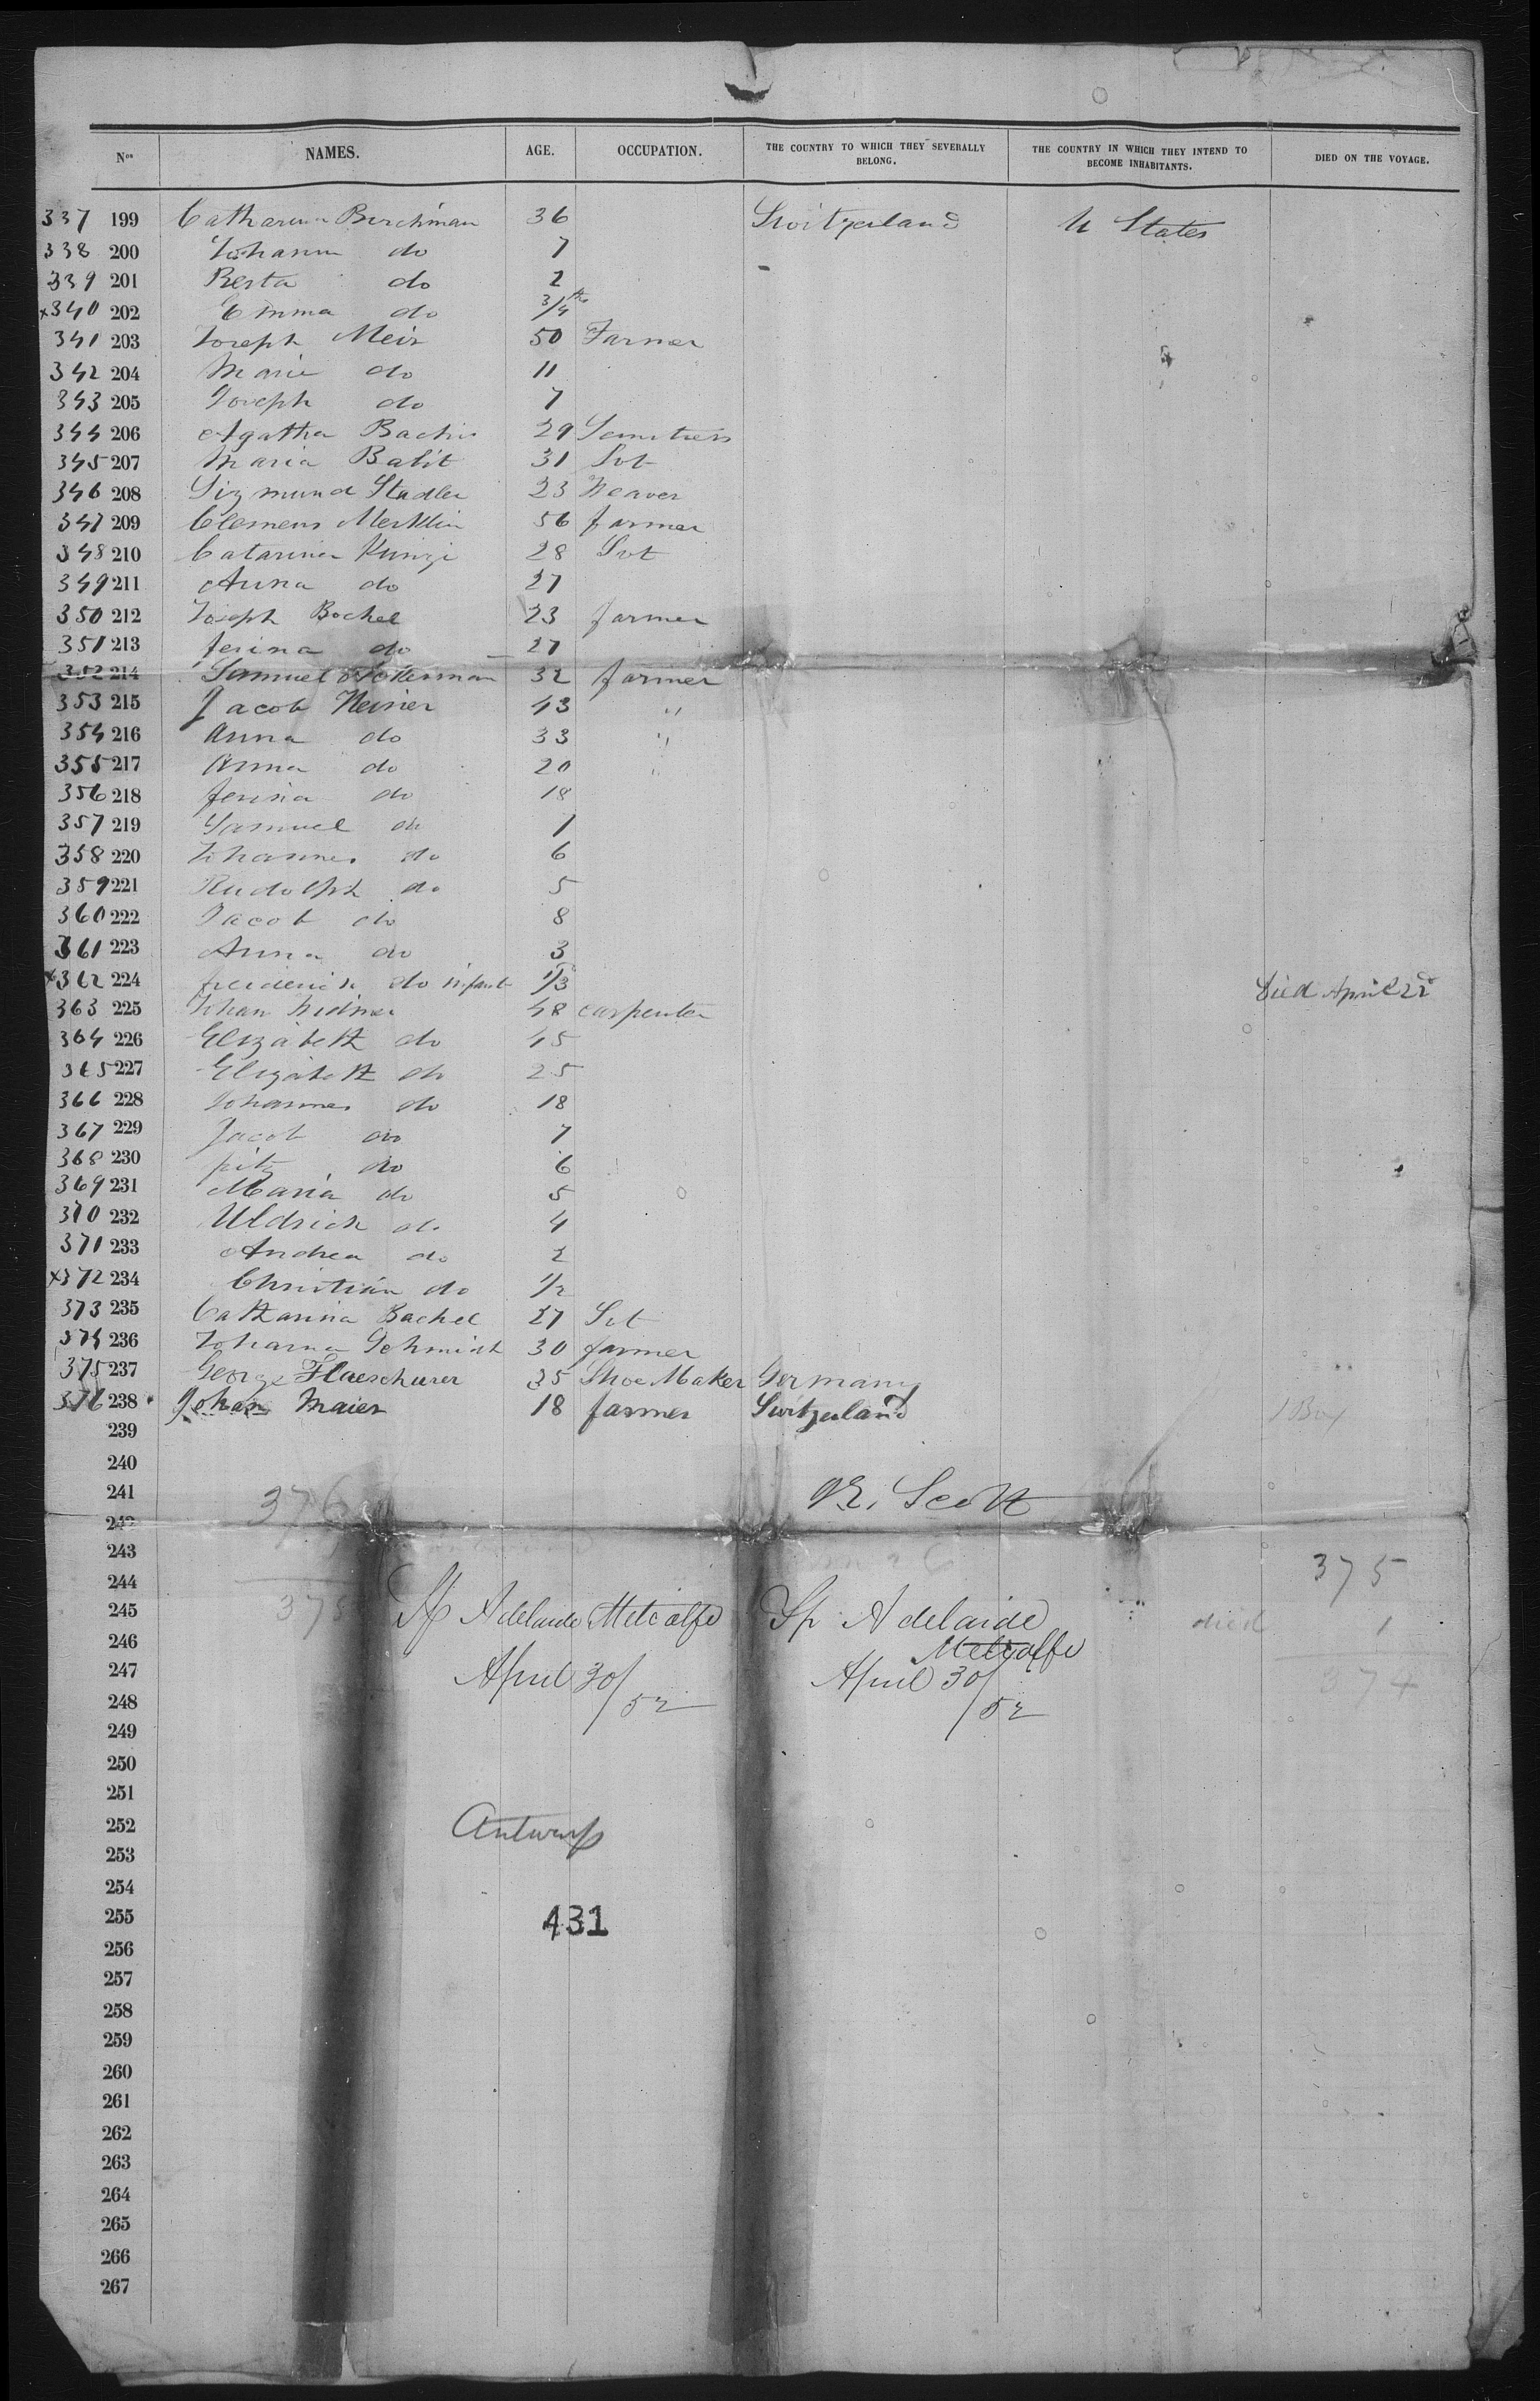 Nos NAMES. AGE. OCCUPATION. THE COUNTRY TO WHICH THEY SEVERALLY BELONG. THE COUNTRY IN WHICH THEY INTEND TO BECOME INHABITANTS. DIED ON THE VOYAGE.
337 199 Catharina Burchman 36 Switzerland U States
338 200 Johann do 7
339 201 Berta do 2
x340 202 Emma do 3/4
341 203 Joseph Meir 50 Farmer
342 204 Marie do 11
343 205 Joseph do 7
344 206 Agatha 29
345 207 Maria Balit 31 Svt
346 208 Sigmund Stadler 23 Weaver
347 209 Clemens Merklin 56 farmer
348 210 Catarina Kunzi 28 Svt
349 211 Anna do 27
350 212 Joseph Bochel 23 farmer
351 213 ferina do 27
352 214 Samuel 32 farmer
353 215 Jacob Heiner 43 "
354 216 Anna do 33 "
355 217 Anna do 20 "
356 218 ferina do 18
357 219 Samuel do 1
358 220 Johannes do 6
359 221 Rudolph do 5
360 222 Jacob do 8
361 223 Anna do 3
x362 224 do infant 1/3 Died April 22d
363 225 Johan Widmer 48 carpenter
364 226 Elizabeth do 45
365 227 Elizabeth do 25
366 228 Johannes do 18
367 229 Jacob do 7
368 230 fritz do 6
369 231 Maria do 5
370 232 Uldrich do 4
371 233 Andrea do 2
x372 234 Christian do 1/2
373 235 Catharina Bachel 27 Svt
374 236 Johanna Schmidt 30 farmer
375 237 George Flaeschurer 35 Shoe Maker Germany
376 238 Johan Maier 18 farmer Switzerland
239
240
241 376 R. Scott
242
243 375
244
245 375 Sp Adelaide Metcalfe Sp Adelaide died 1
246 Metcalfe
247 April 30/ April 30/ 374
248 52 52
249
250
251
252 Antwerp
253
254
255 431
256
257
258
259
260
261
262
263
264
265
266
267